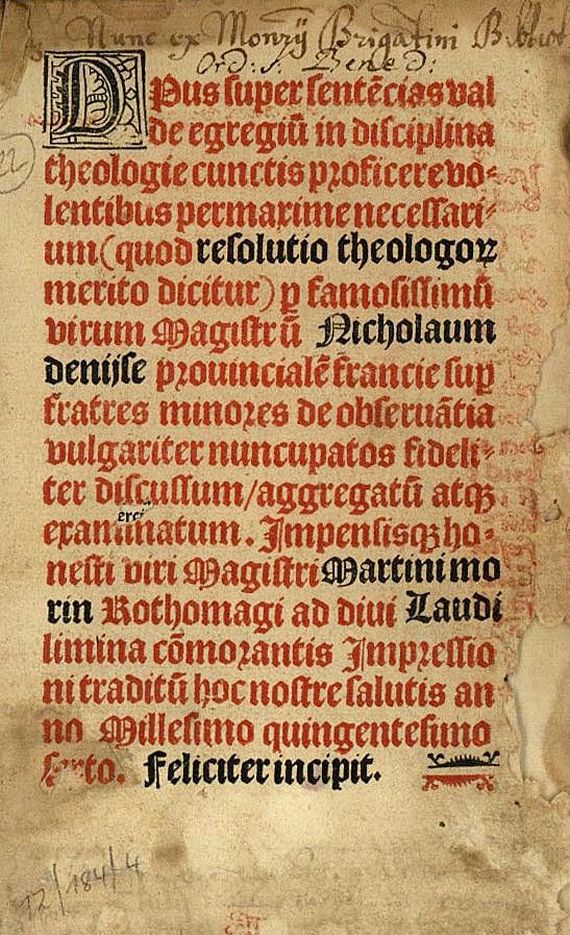 Nunc ex Monrÿ Brigatini Biblioth
Ord: S. Bened:
22
OPus super sentēcias val
de egregiū in disciplina
theologie cunctis proficere vo⸗
lentibus permaxime necessari⸗
um (quod resolutio theologoꝝ
merito dicitur) ꝑ famosissimū
virum Magistrū Nicholaum
denijse prouincialē francie suꝑ
fratres minores de obseruātia
vulgariter nuncupatos fideli⸗
ter discussum/aggregatū atqꝫ
erci
exam̄inatum. Impensisqꝫ ho⸗
nesti viri Magistri Martini mo
rin Rothomagi ad diui Laudi
limina cōmorantis Impressio
ni traditū hoc nostre salutis an
no Millesimo quingentesimo
sexto. Feliciter incipit.
12/184/4